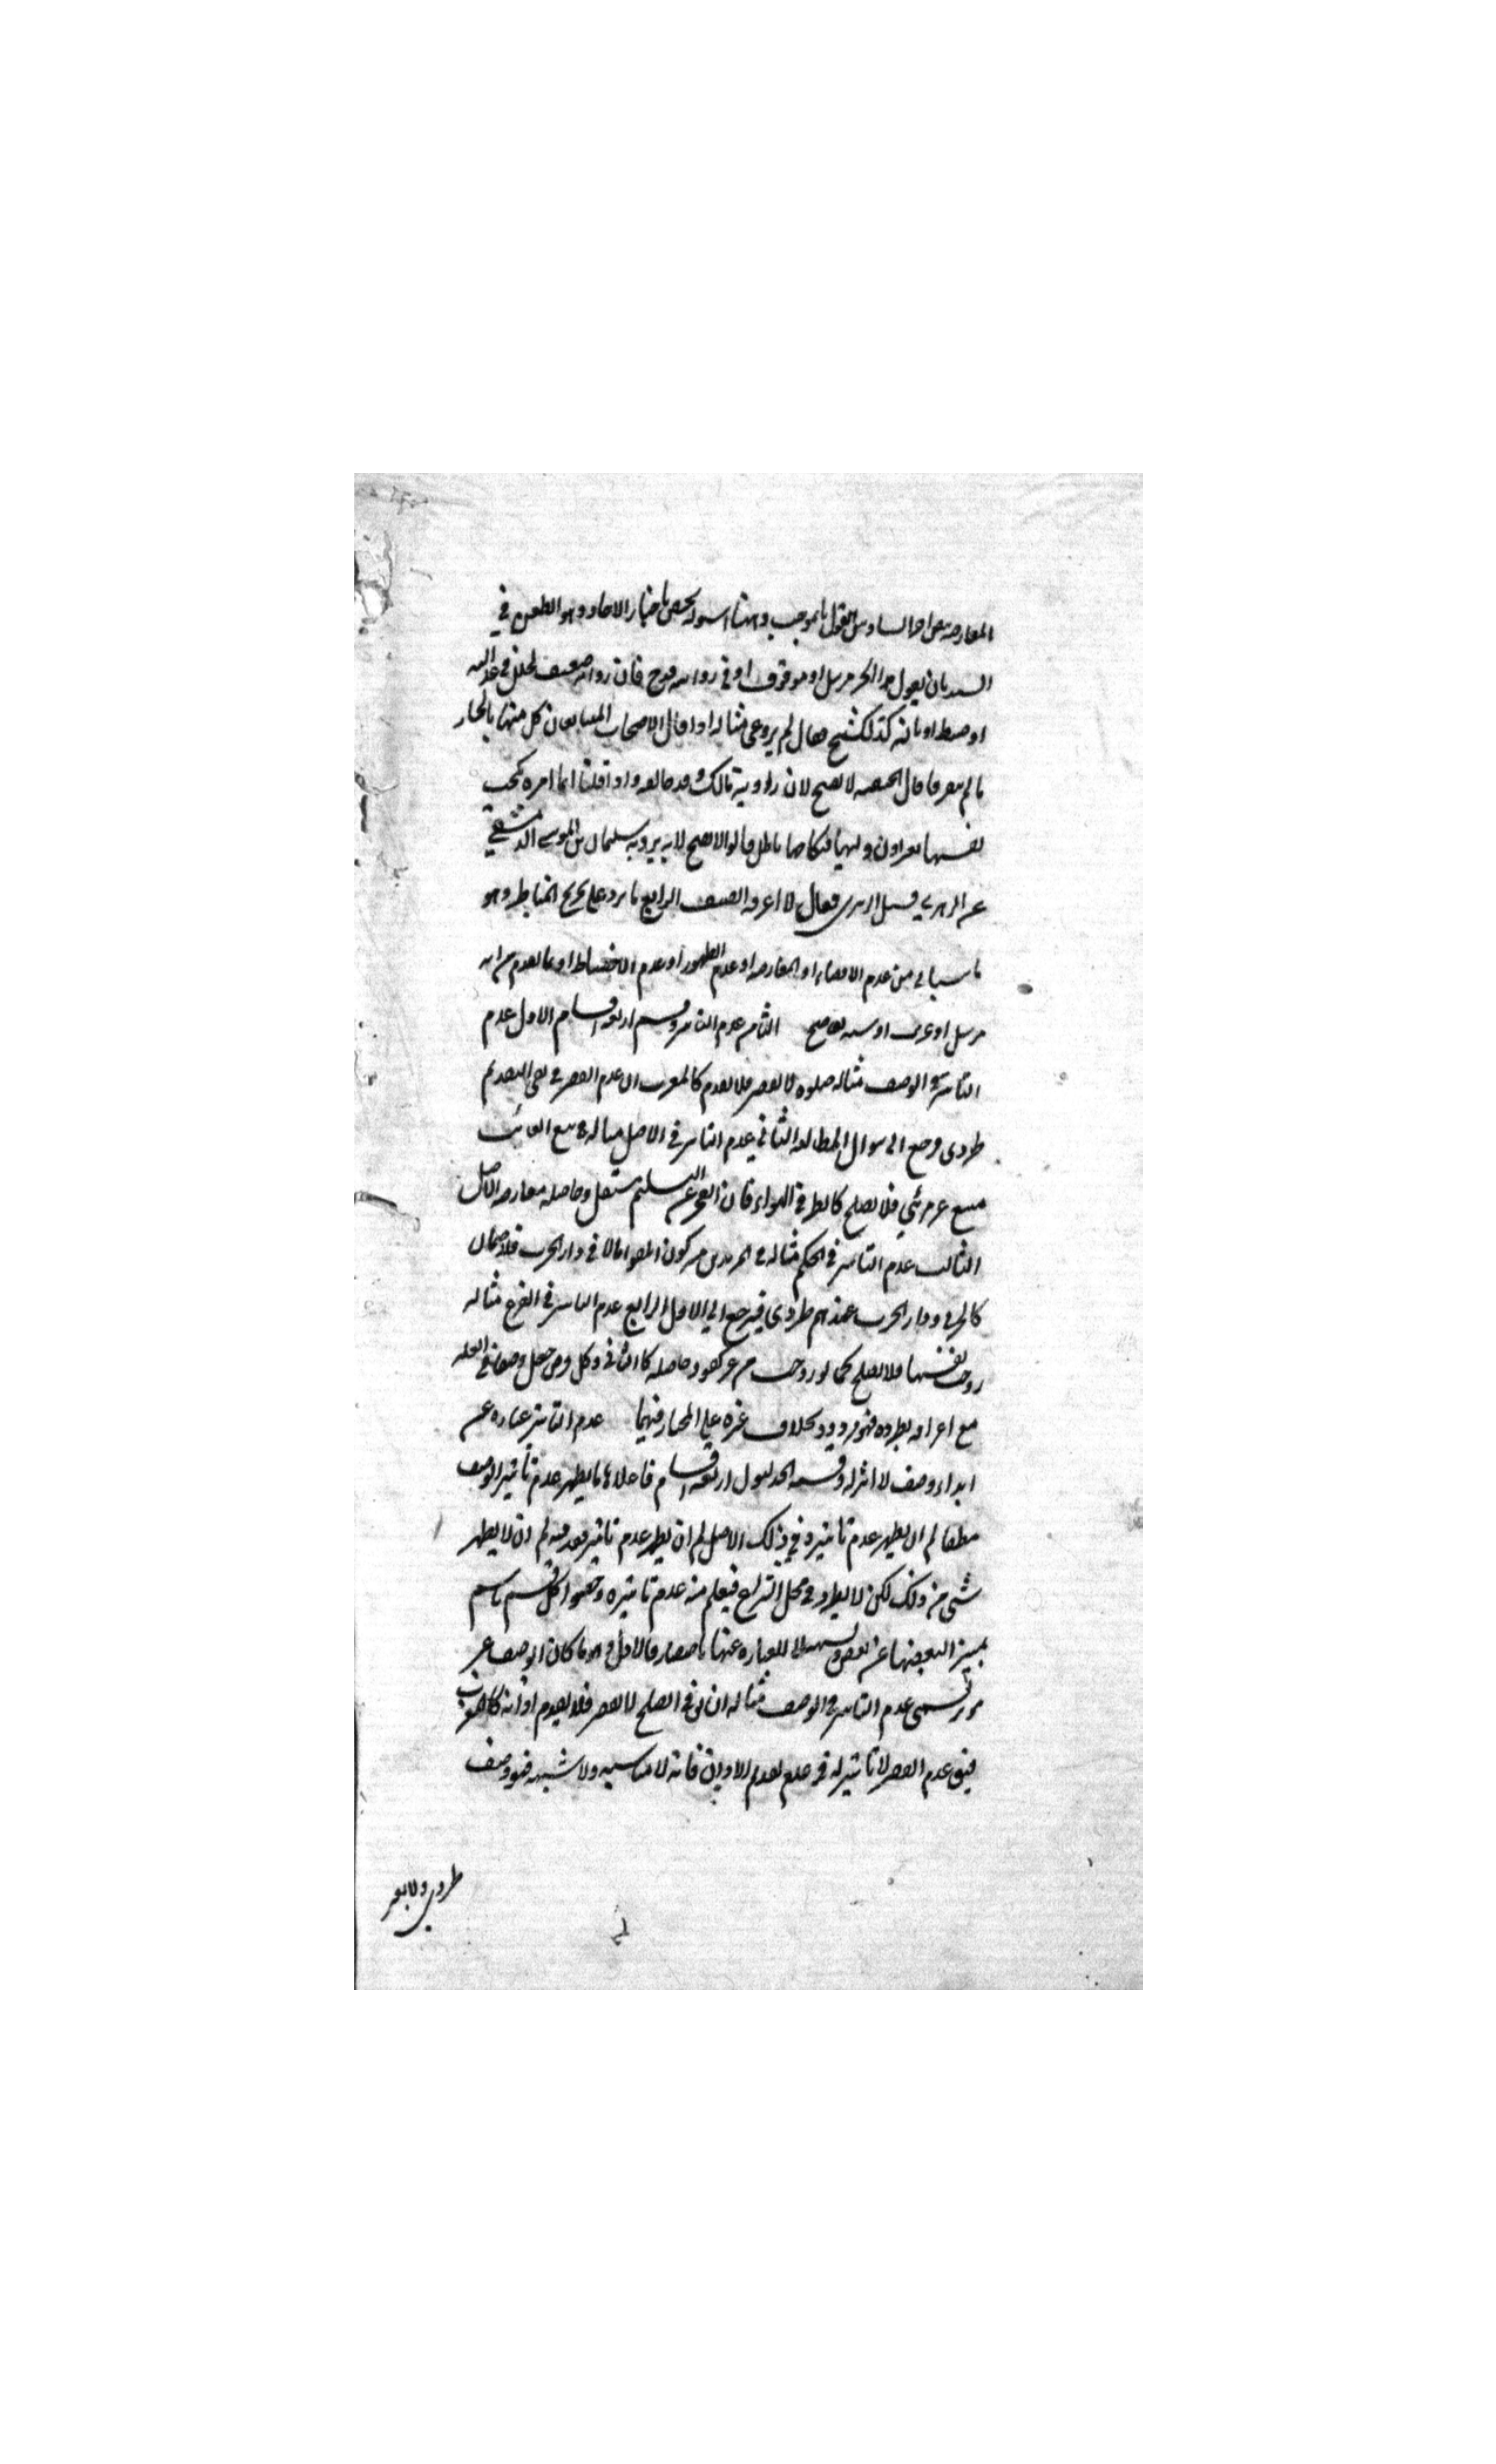 المعارضه بنص اخر السادس القول بالموجب وههنا اسوله تختص باخبار الاحاد وهو الطعن في
السند بان يقول هذا الخبر مرسل او موقوف او في روايته قدح فان روايه ضعيف لخلل في عدالته
او ضبطه او بانه كذبه الشيخ فقال لم يرو عني مثاله اذا قال الاصحاب المتبايعان كل منهما بالخيار
ما لم يتفرقا قال الحنفيه لا يصح لان راويه مالك وقد خالفه واذا قلنا ايما امراه نكحت
نفسها بغير اذن وليها فنكاحها باطل قالوا لا يصح لانه يرويه سليمان بن موسى الدمشقي
عن الزهري فسئل الزهري فقال لا اعرفه الصنف الرابع ما يرد على تخريج المناط وهو
ما سياتي من عدم الافضاء او المعارضه او عدم الظهور او عدم الانضباط او ما تقدم من انه
مرسل او غريب او شبه فاصبح الثامن عدم التاثير وقسم اربعه اقسام الاول عدم
التاثير في الوصف مثاله صلوه لا تقصر فلا تقدم كالمغرب لان عدم القصر في نفي التقديم
طردي فرجع الى سوال المطالبه الثاني عدم التاثير في الاصل مثاله في بيع الغائب
مبيع غير مرئي فلا يصح كالطير في الهواء فان العجز عن التسليم مستقل وحاصله معارضه الاصل
الثالث عدم التاثير في الحكم مثاله في المرتدين مشركون اتلفوا مالا في دار الحرب فلا ضمان
كالحربي ودار الحرب عندهم طردي فيرجع الى الاول الرابع عدم التاثير في الفرع مثاله
زوجت نفسها فلا يصح كما لو زوجت من غير كفو وحاصله كالثاني وكل فرض جعل وصفا في العله
مع اعترافه بطرده فهو مردود بخلاف غيره على المختار فيهما عدم التاثير عباره عن
ابداء وصف لا اثر له وقسمه الجدليون اربعه اقسام فاعلاها ما يظهر عدم تاثير الوصف
مطلقا ثم ان يظهر عدم تاثيره في ذلك الاصل ثم ان يظهر عدم تاثير قيد منه ثم ان لا يظهر
شئ من ذلك لكن لا يطرد في محل النزاع فيعلم منه عدم تاثيره وخصوا كل قسم باسم
تمييزا لبعضها عن بعض وتسهيلا للعباره عنها باختصار فالاول وهو ما كان الوصف غير
موثر تسمى عدم التاثير في الوصف مثاله ان يق في الصبح لا يقصر فلا يقدم اذانه كالمغرب
فيق عدم القصر لا تاثير له في عدم تقديم الاذان فانه لا مناسبه ولا شبهه فهو وصف
طردي ولا يعتبر